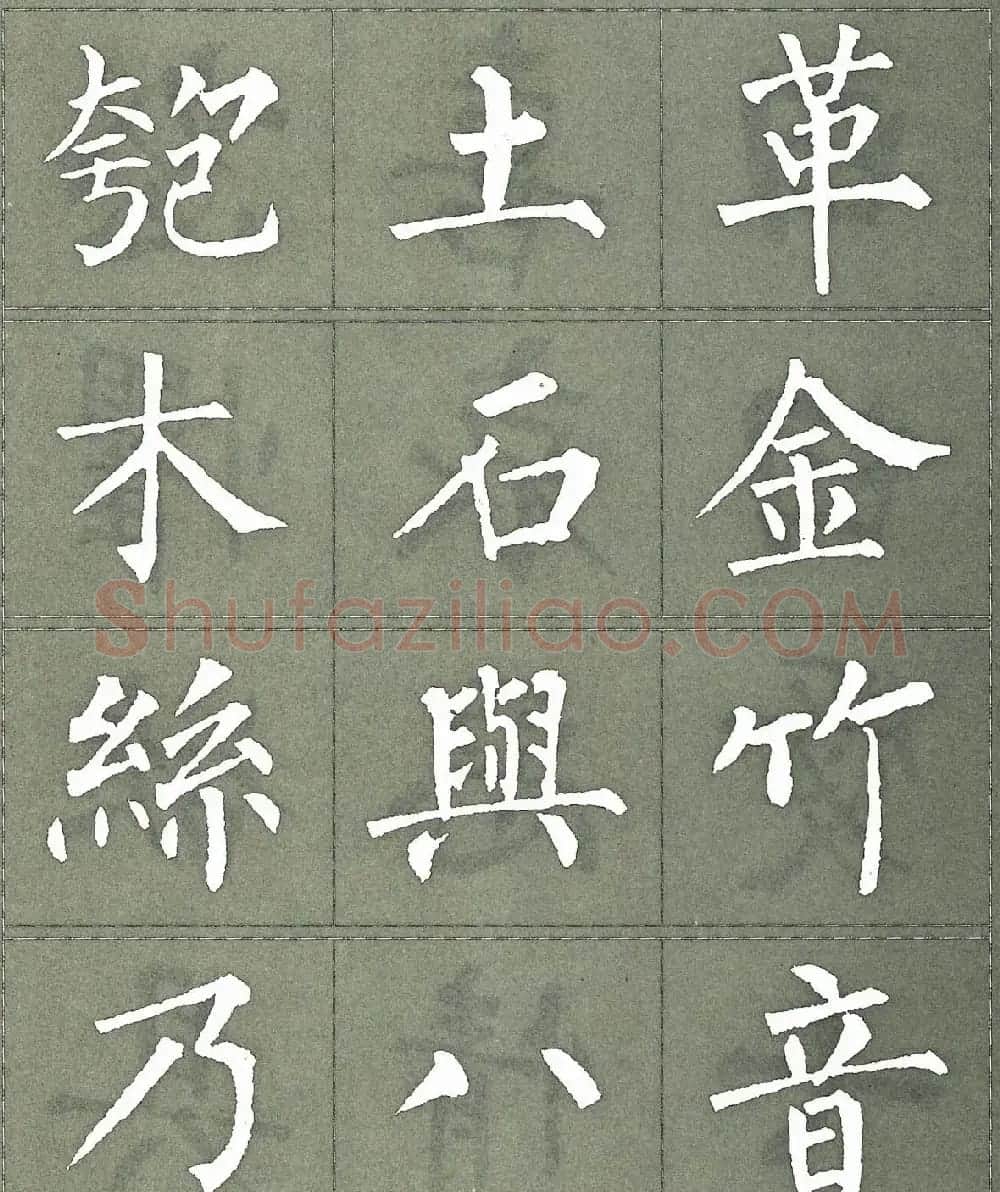 匏土革
木石金
Shufaziliao.COM
絲與竹
乃八音